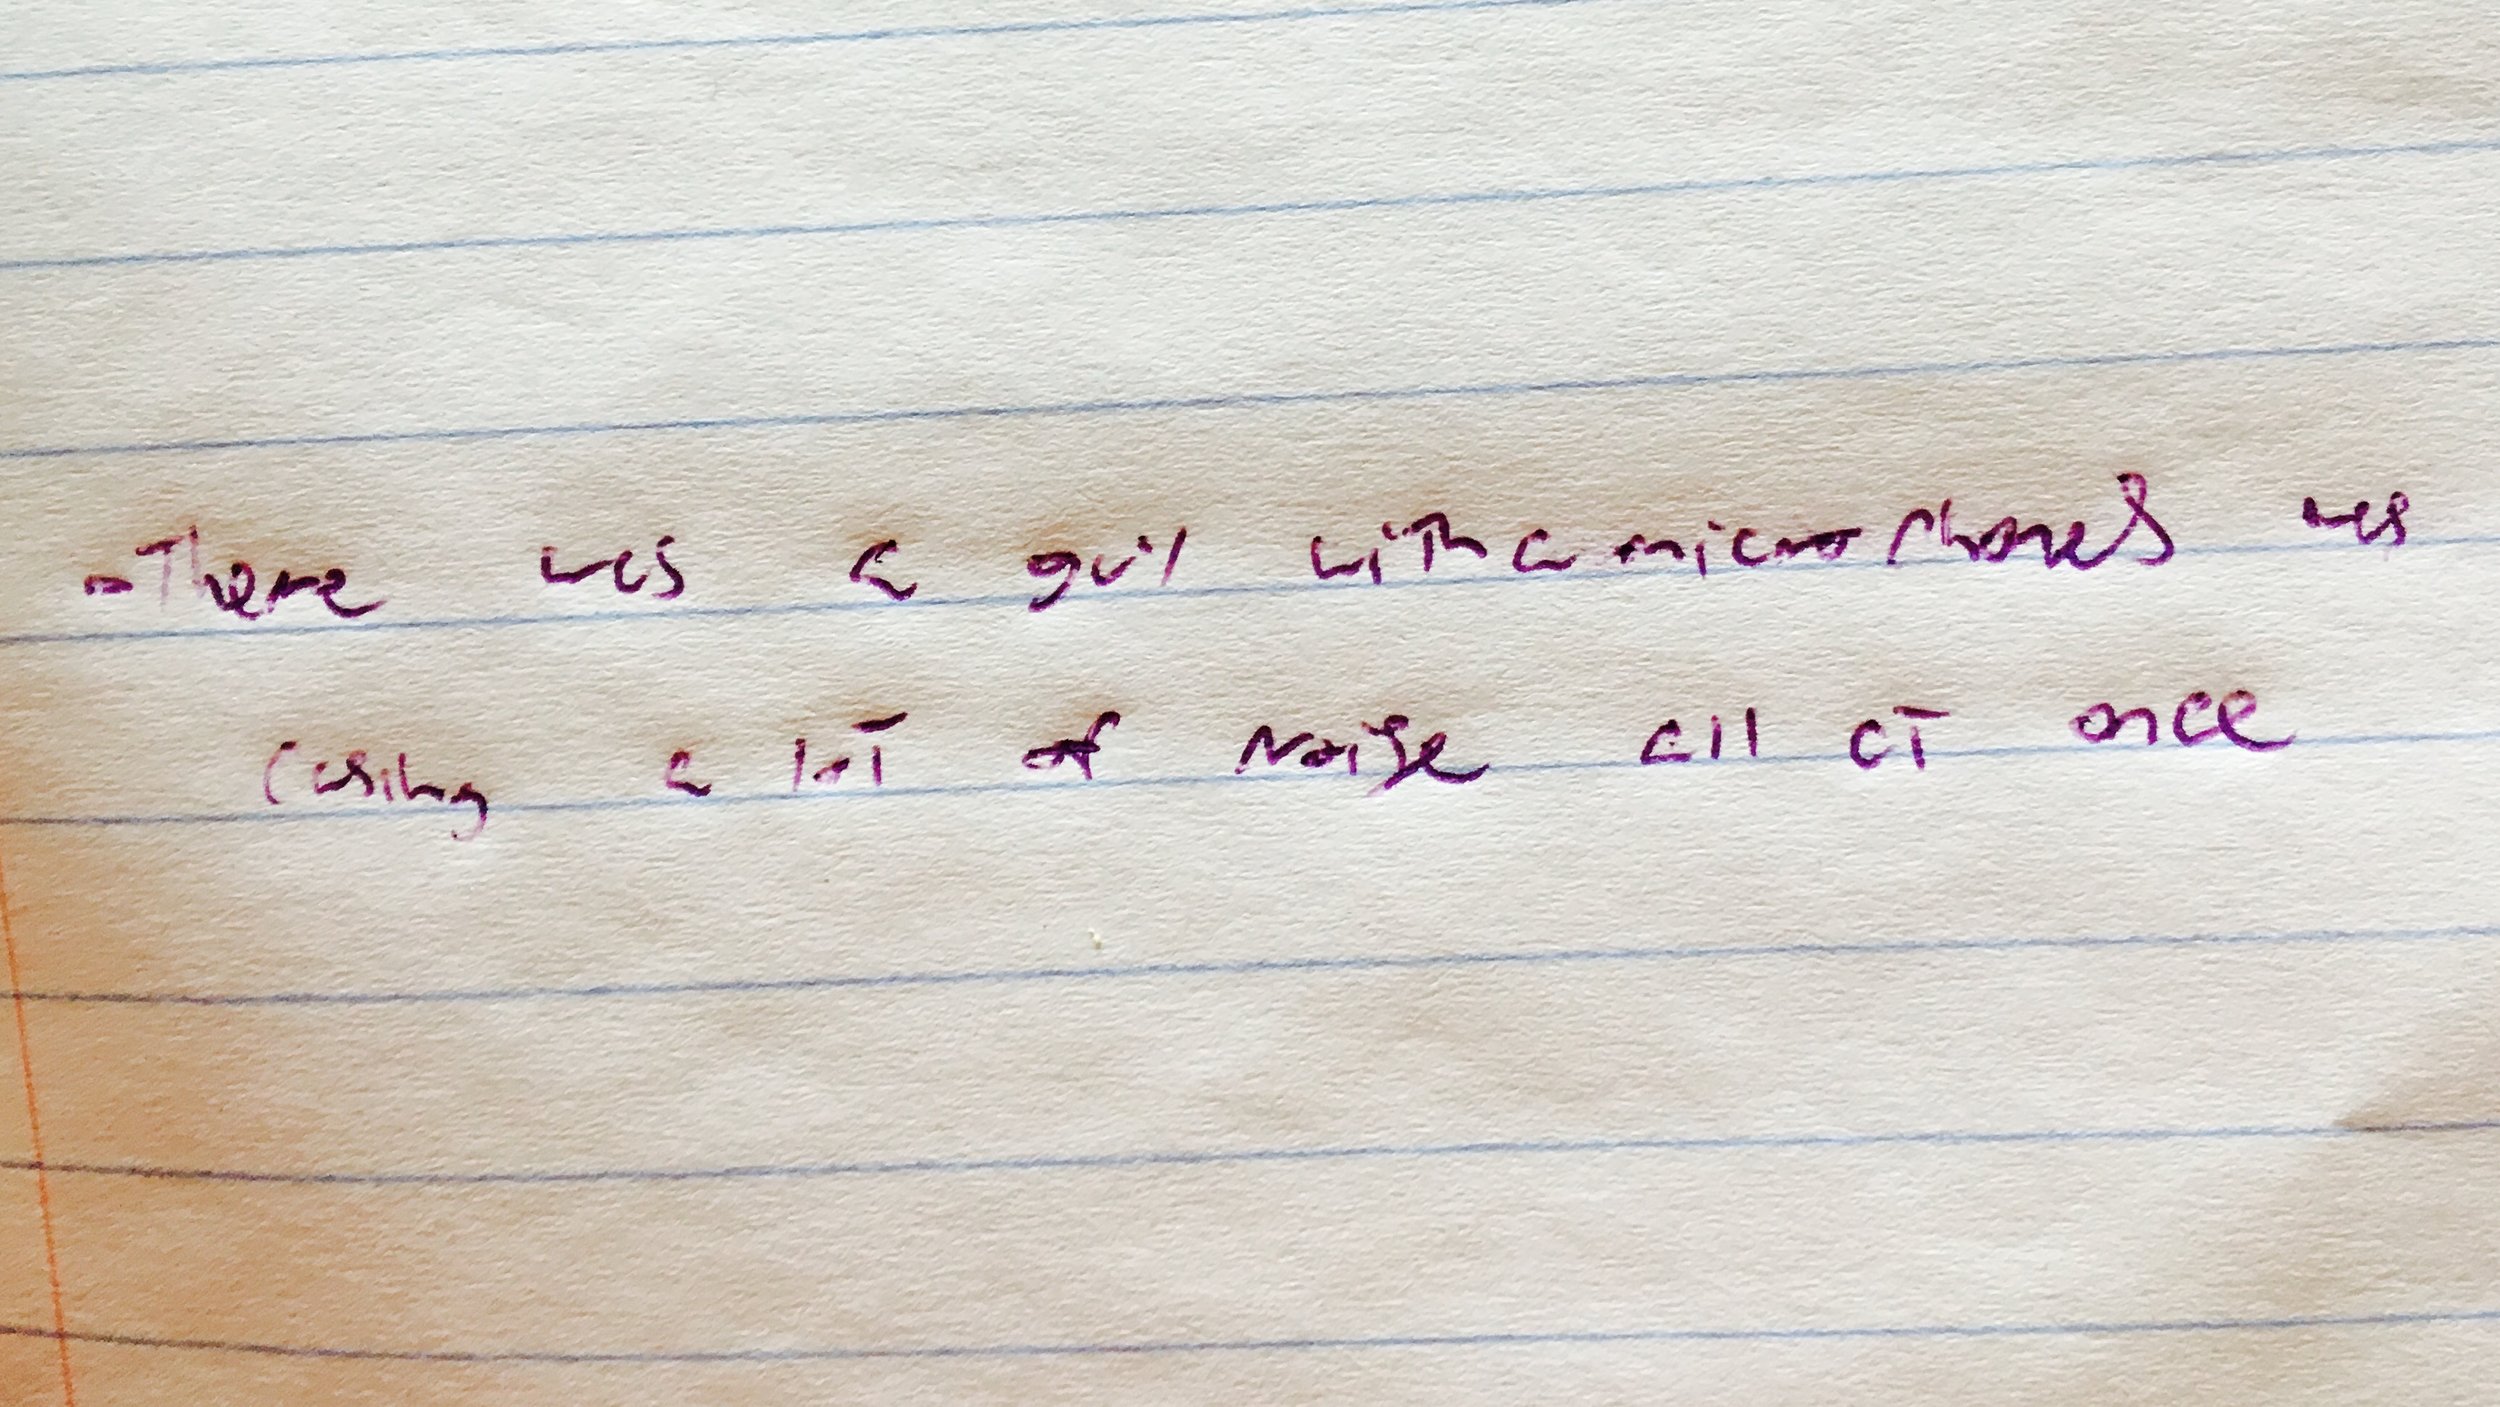 - There was a guy with a microphone & was
casing a lot of noise all at once